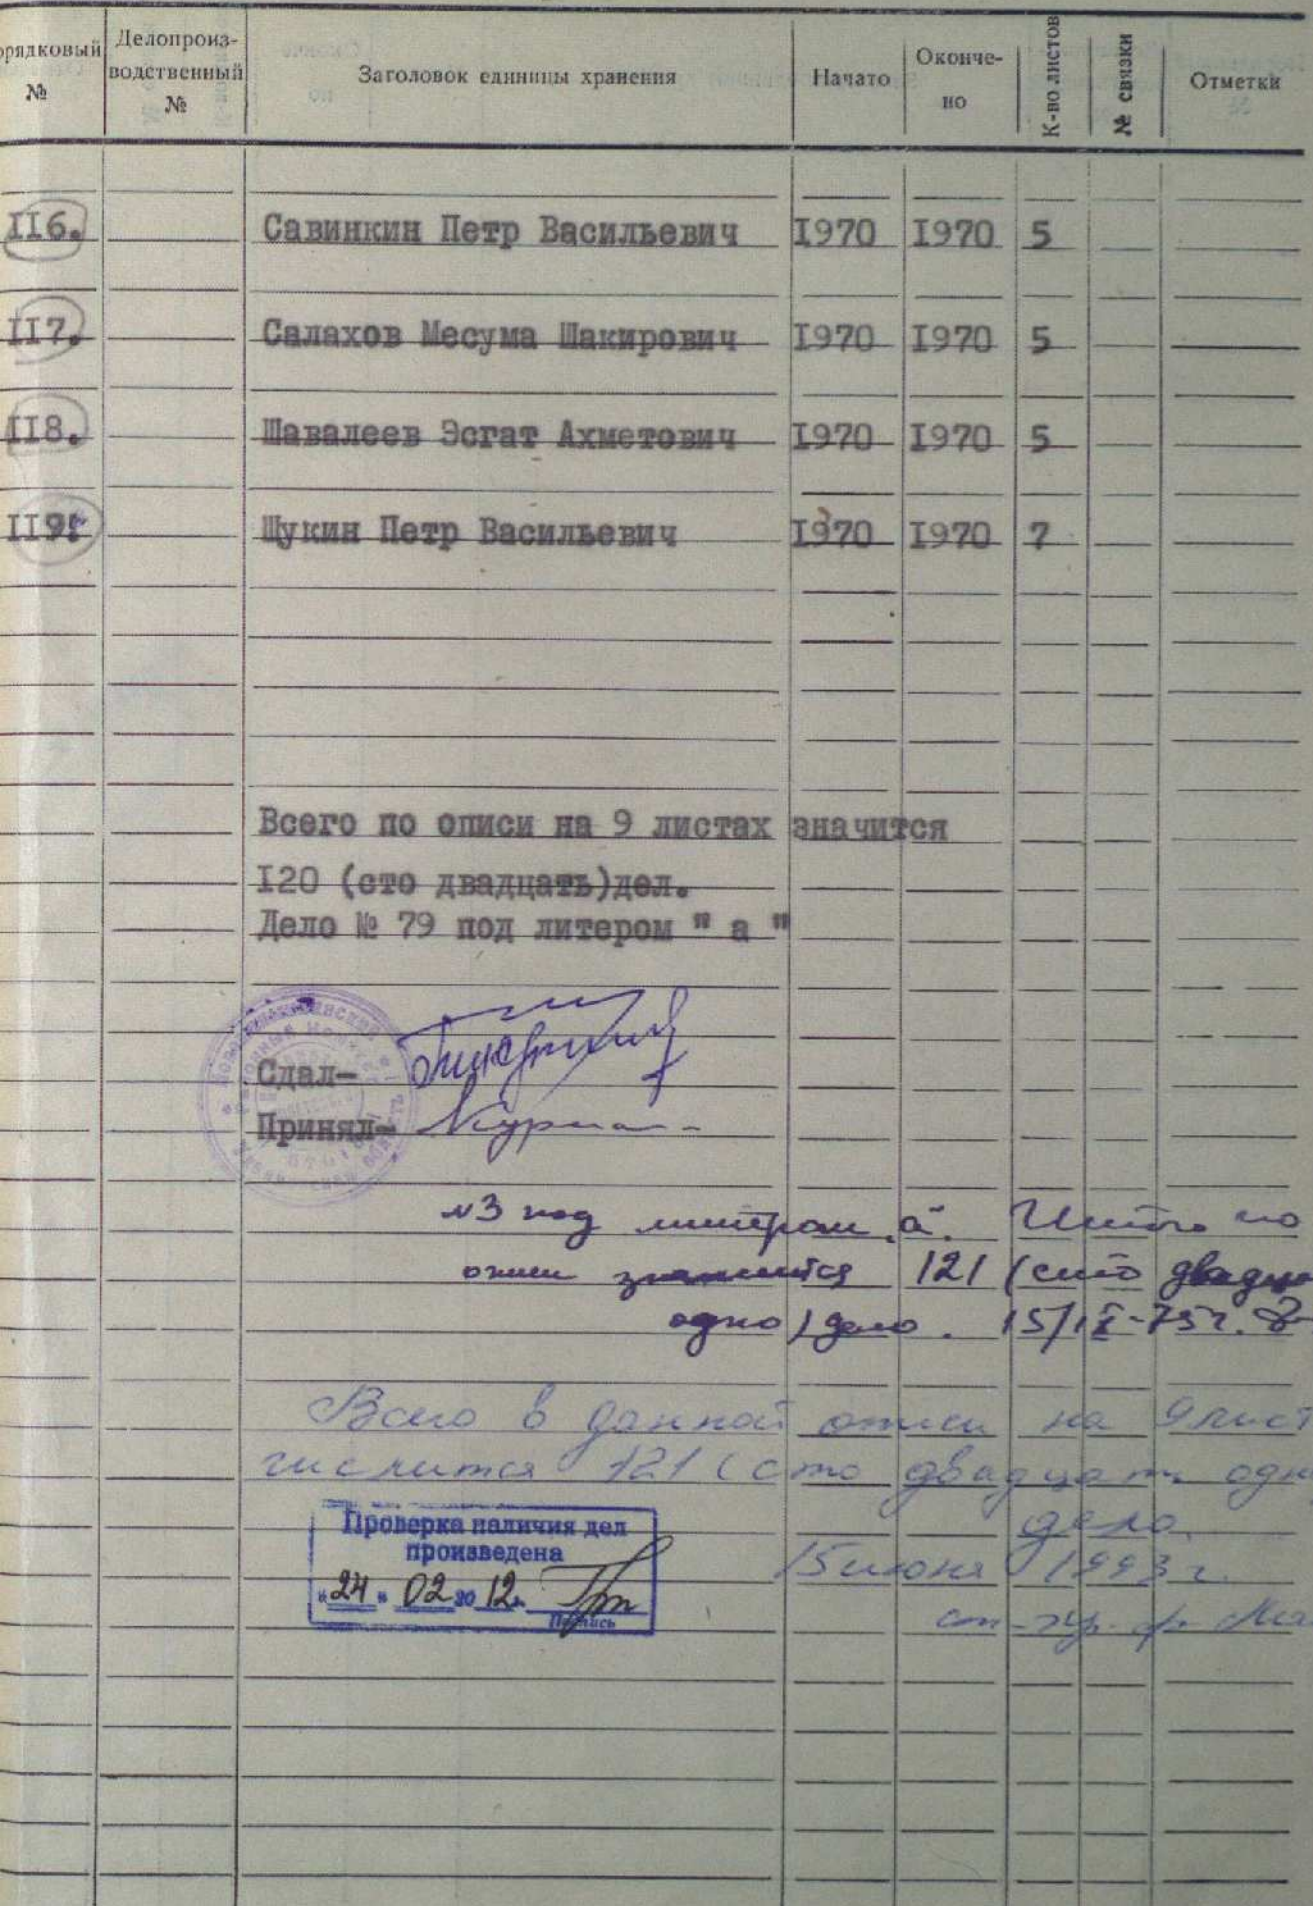 орядковый № Делопроиз-водственный № Заголовок единицы хранения Начато Оконче-но К-во листов № связки Отметки
II6. Савинкин Петр Васильевич I970 I970 5
II7. Салахов Месума Шакирович I970 I970 5
II8. Шавалеев Эсгат Ахметович I970 I970 5
II9. Щукин Петр Васильевич I970 I970 7
Всего по описи на 9 листах значится
I20 (сто двадцать)дел.
Дело № 79 под литером " а "
Сдал-
Принял-
№3 под литером „а". Итого по
описи значится 121 (сто двадца
одно) дело. 15/IX-75г.
Всего в данной описи на 9 лист
числится 121 (сто двадцать одн
дело.
15 июня 1993 г.
Проверка наличия дел
произведена
"24" 02 20 12г.
Подпись